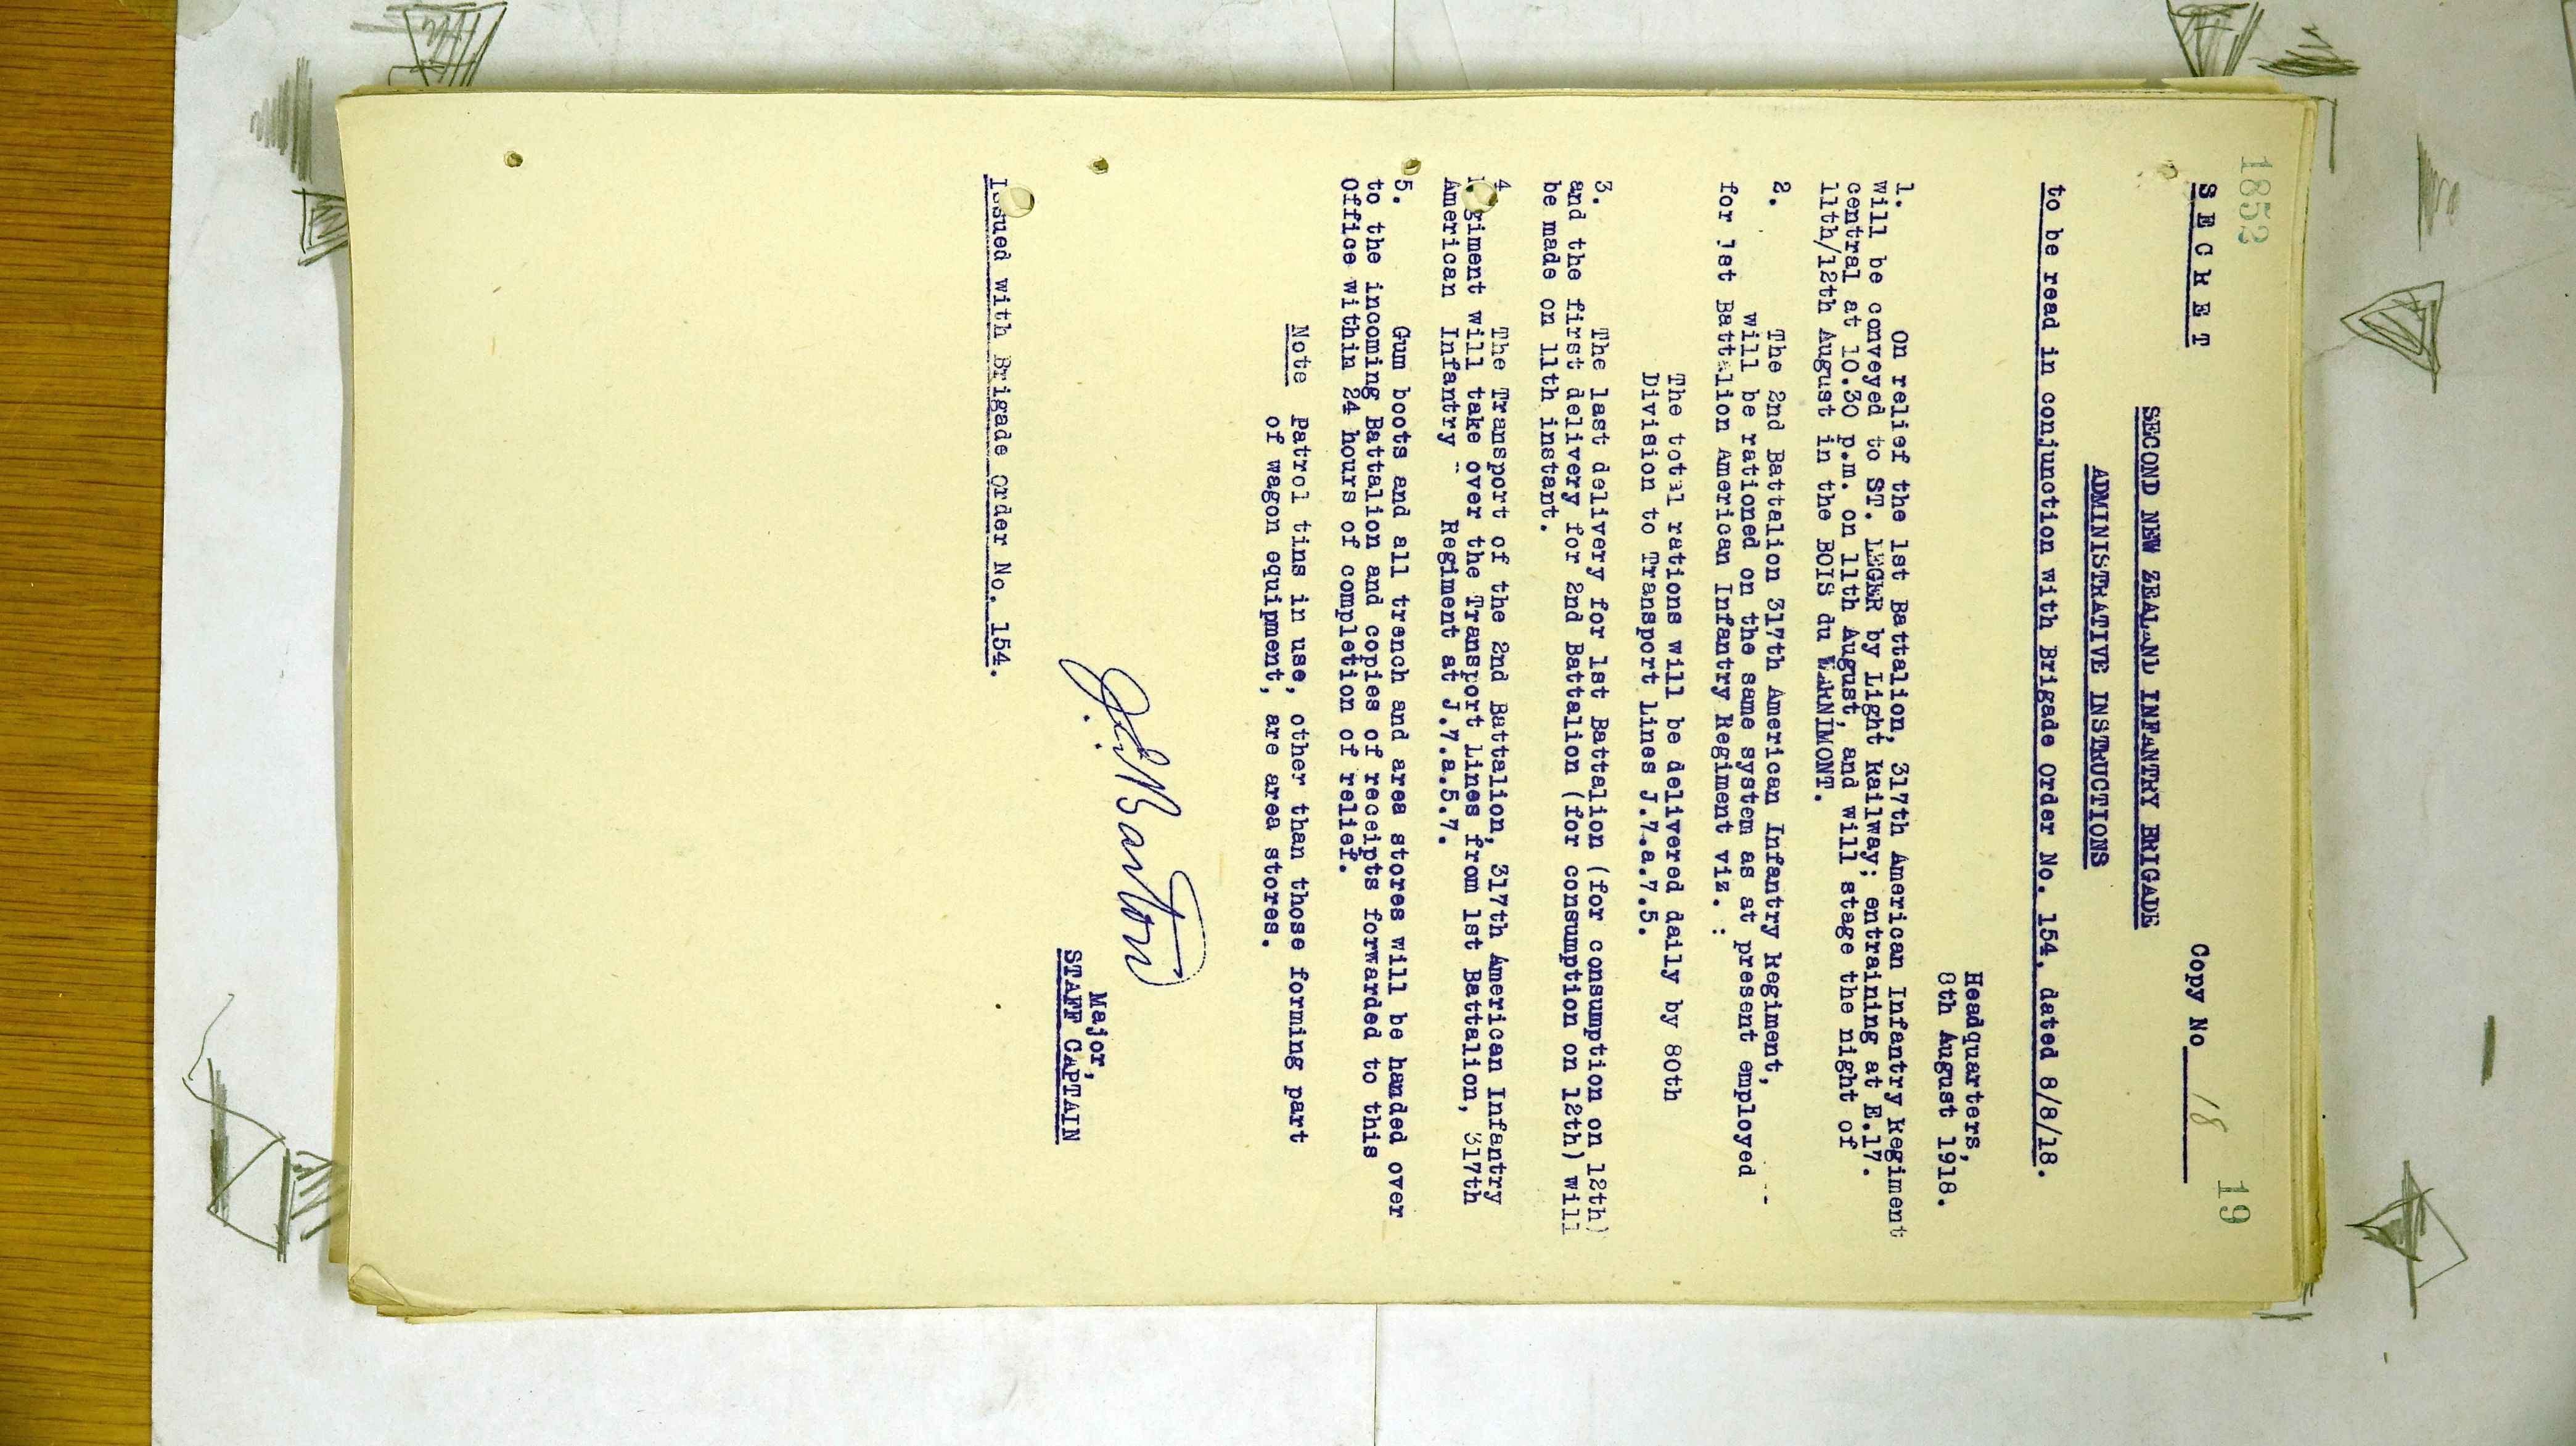 1852
19
S E C R E T
Copy No 18
SECOND NEW ZEALAND INFANTRY BRIGADE
ADMINISTRATIVE INSTRUCTIONS
to be read in conjunction with Brigade Order No. 154, dated 8/8/18.
Headquarters,
8th August 1918.
1. On relief the 1st Battalion, 317th American Infantry Regiment
will be conveyed to ST. LEGER by Light Railway; entraining at E.17.
central at 10.30 p.m. on 11th August, and will stage the night of
11th/12th August in the BOIS du WARNIMONT.
2. The 2nd Battalion 317th American Infantry Regiment,
will be rationed on the same system as at present employed
for 1st Battalion American Infantry Regiment viz. :
The total rations will be delivered daily by 80th
Division to Transport Lines J.7.a.7.5.
3. The last delivery for 1st Battalion (for consumption on 12th)
and the first delivery for 2nd Battalion (for consumption on 12th) will
be made on 11th instant.
4 The Transport of the 2nd Battalion, 317th American Infantry
Regiment will take over the Transport Lines from 1st Battalion, 317th
American Infantry Regiment at J.7.a.5.7.
5. Gum boots and all trench and area stores will be handed over
to the incoming Battalion and copies of receipts forwarded to this
office within 24 hours of completion of relief.
Note Patrol tins in use, other than those forming part
of wagon equipment, are area stores.
Barton
Major,
STAFF CAPTAIN
Issued with Brigade Order No. 154.